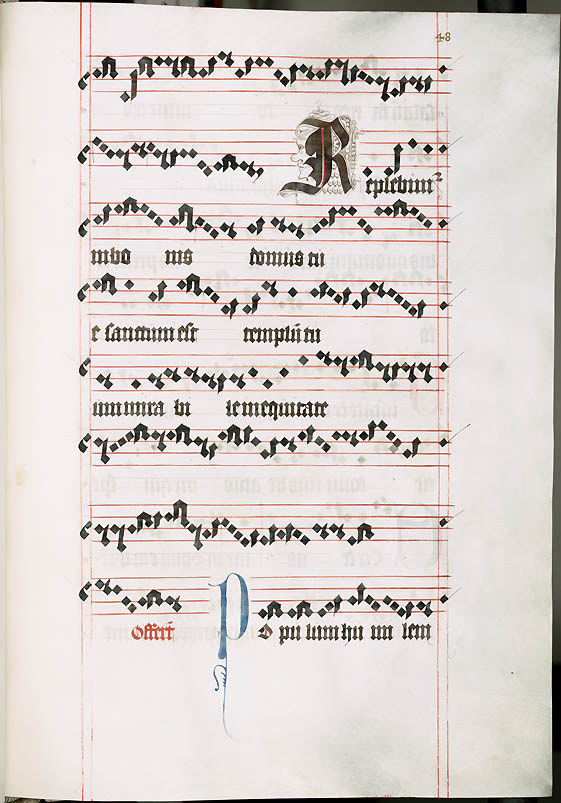 48
Replebimᷣ
in bo nis domus tu
e sanctum est templū tu
um mira bi le in equitate
Offert̄ Po pu lum hu mi lem